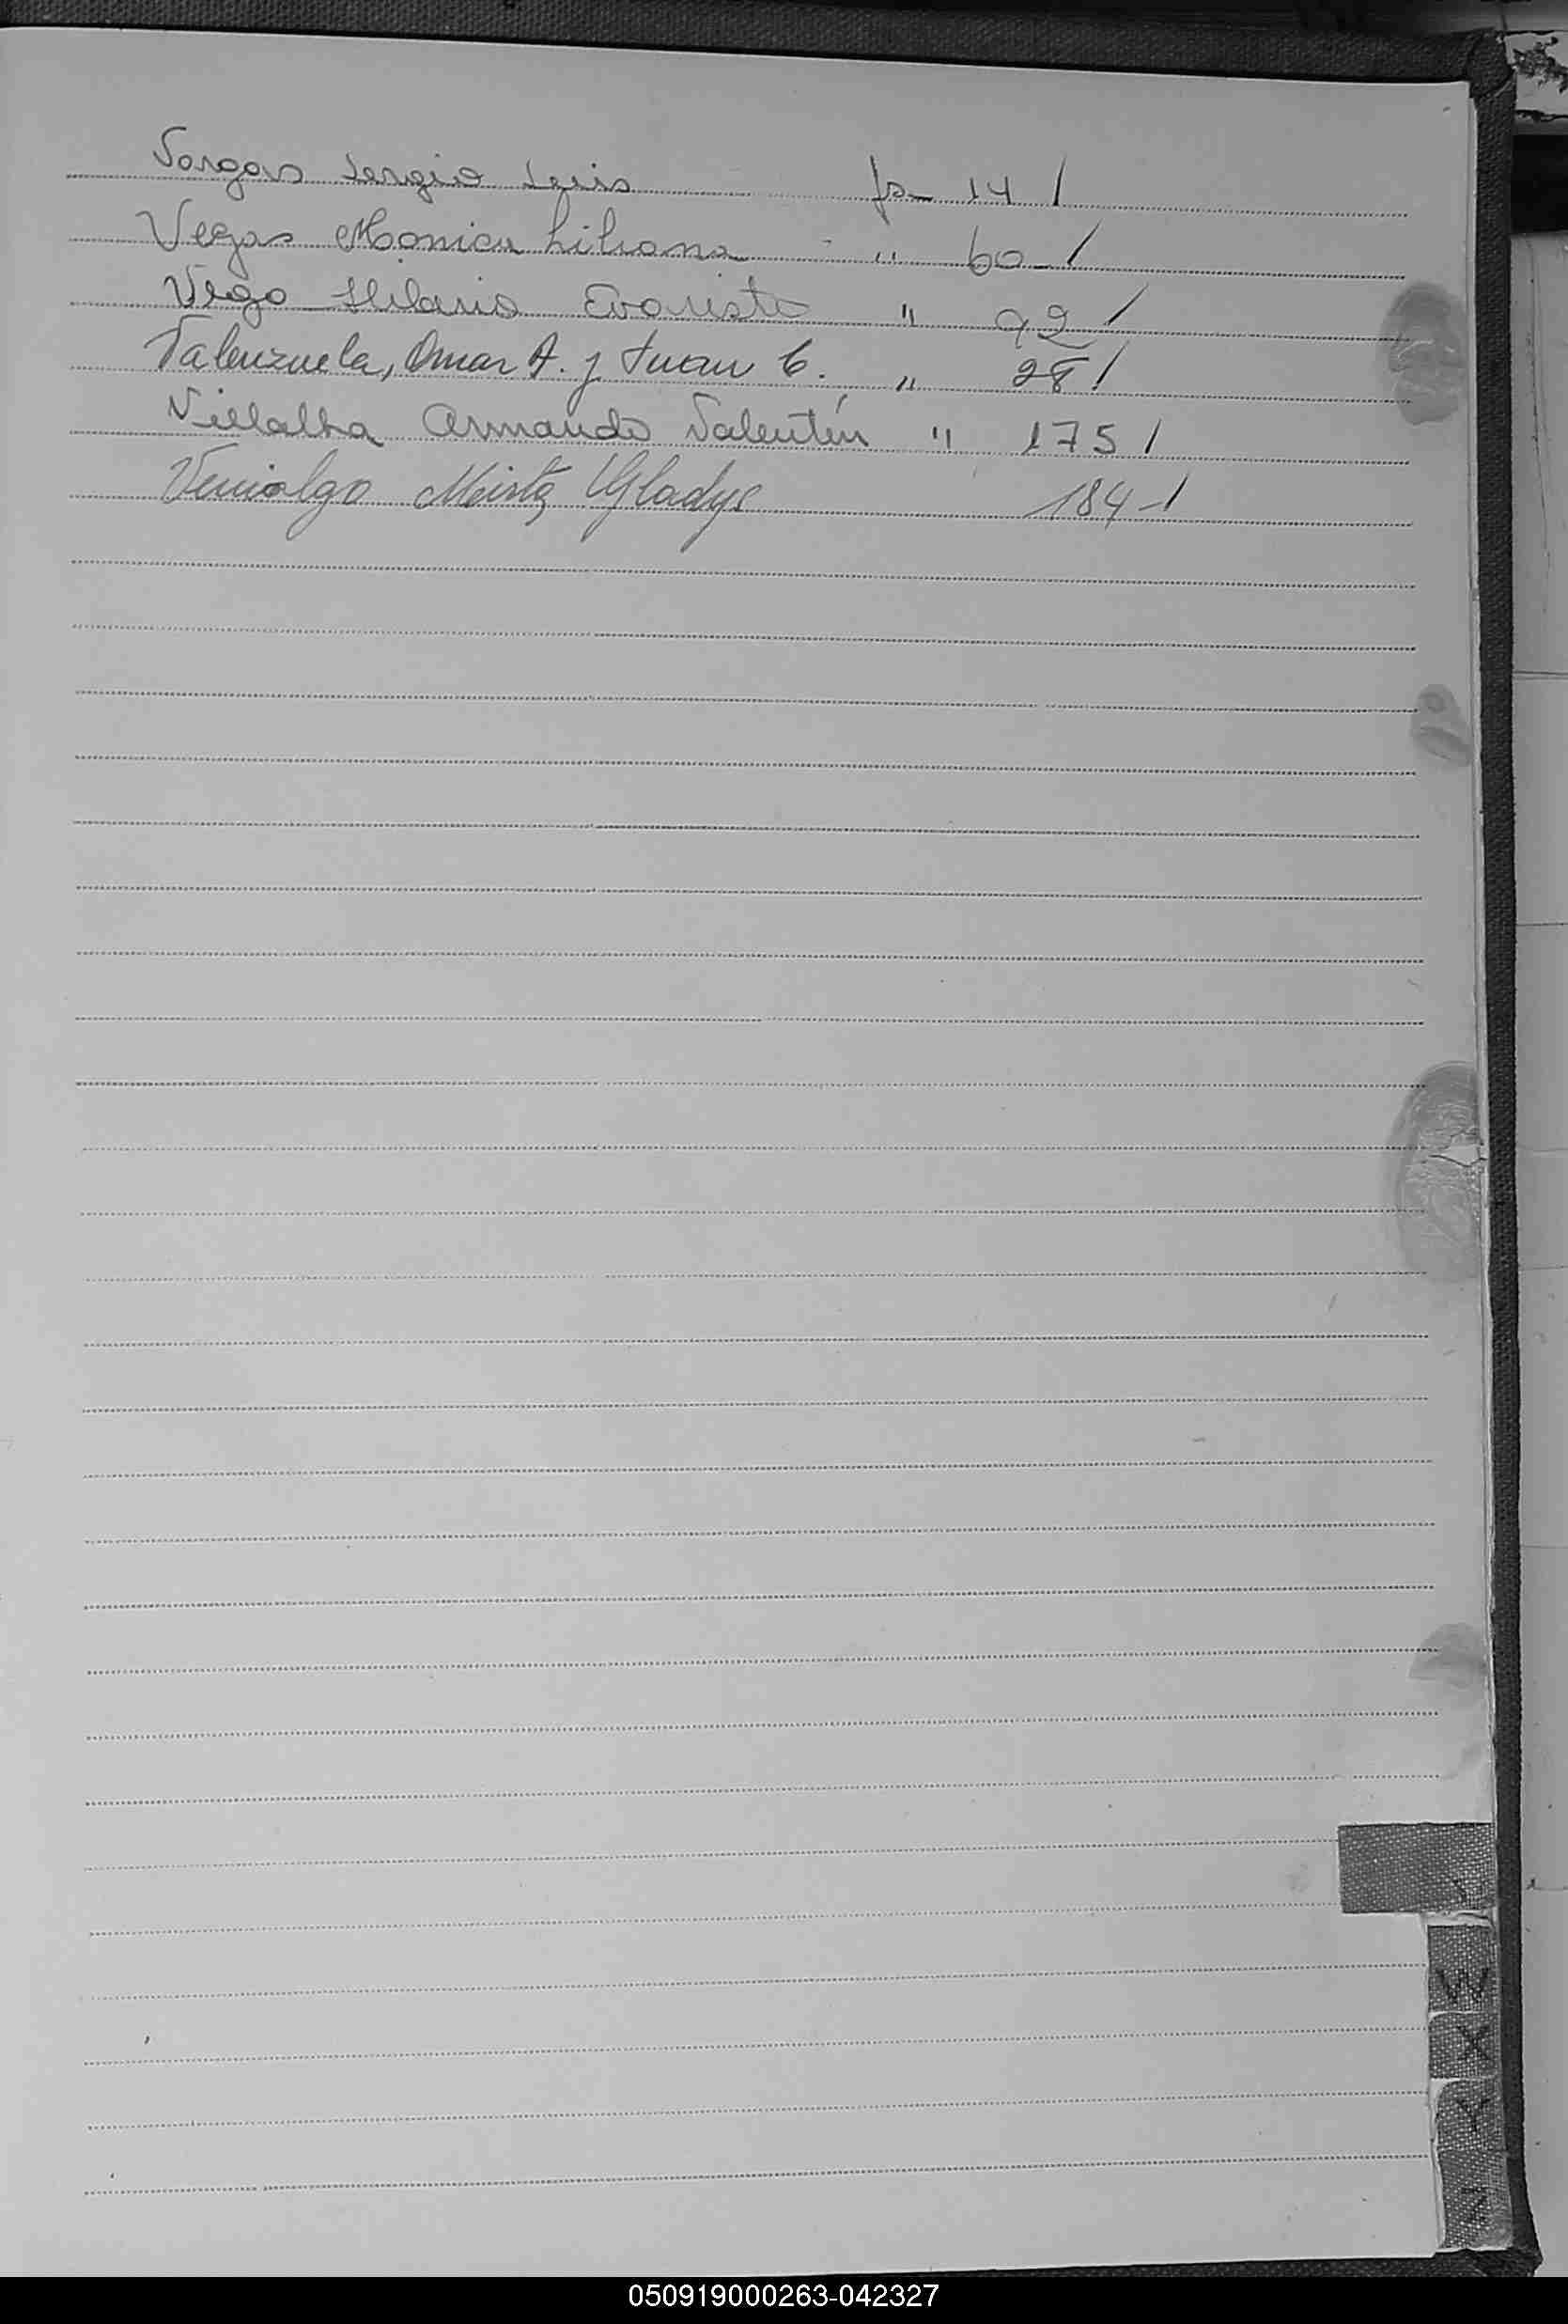 Vargas Sergio Luis fs- 14 /
Vegas Monica Liliana - " 60 - /
Vega Hilario Evaristo " 92 /
Valenzuela, Omar A. y Juan C. " 28 /
Villalba Armando Valentín " 175 /
Venialgo Mirta Gladys 184 - /
W
X
Y
Z
050919000263-042327